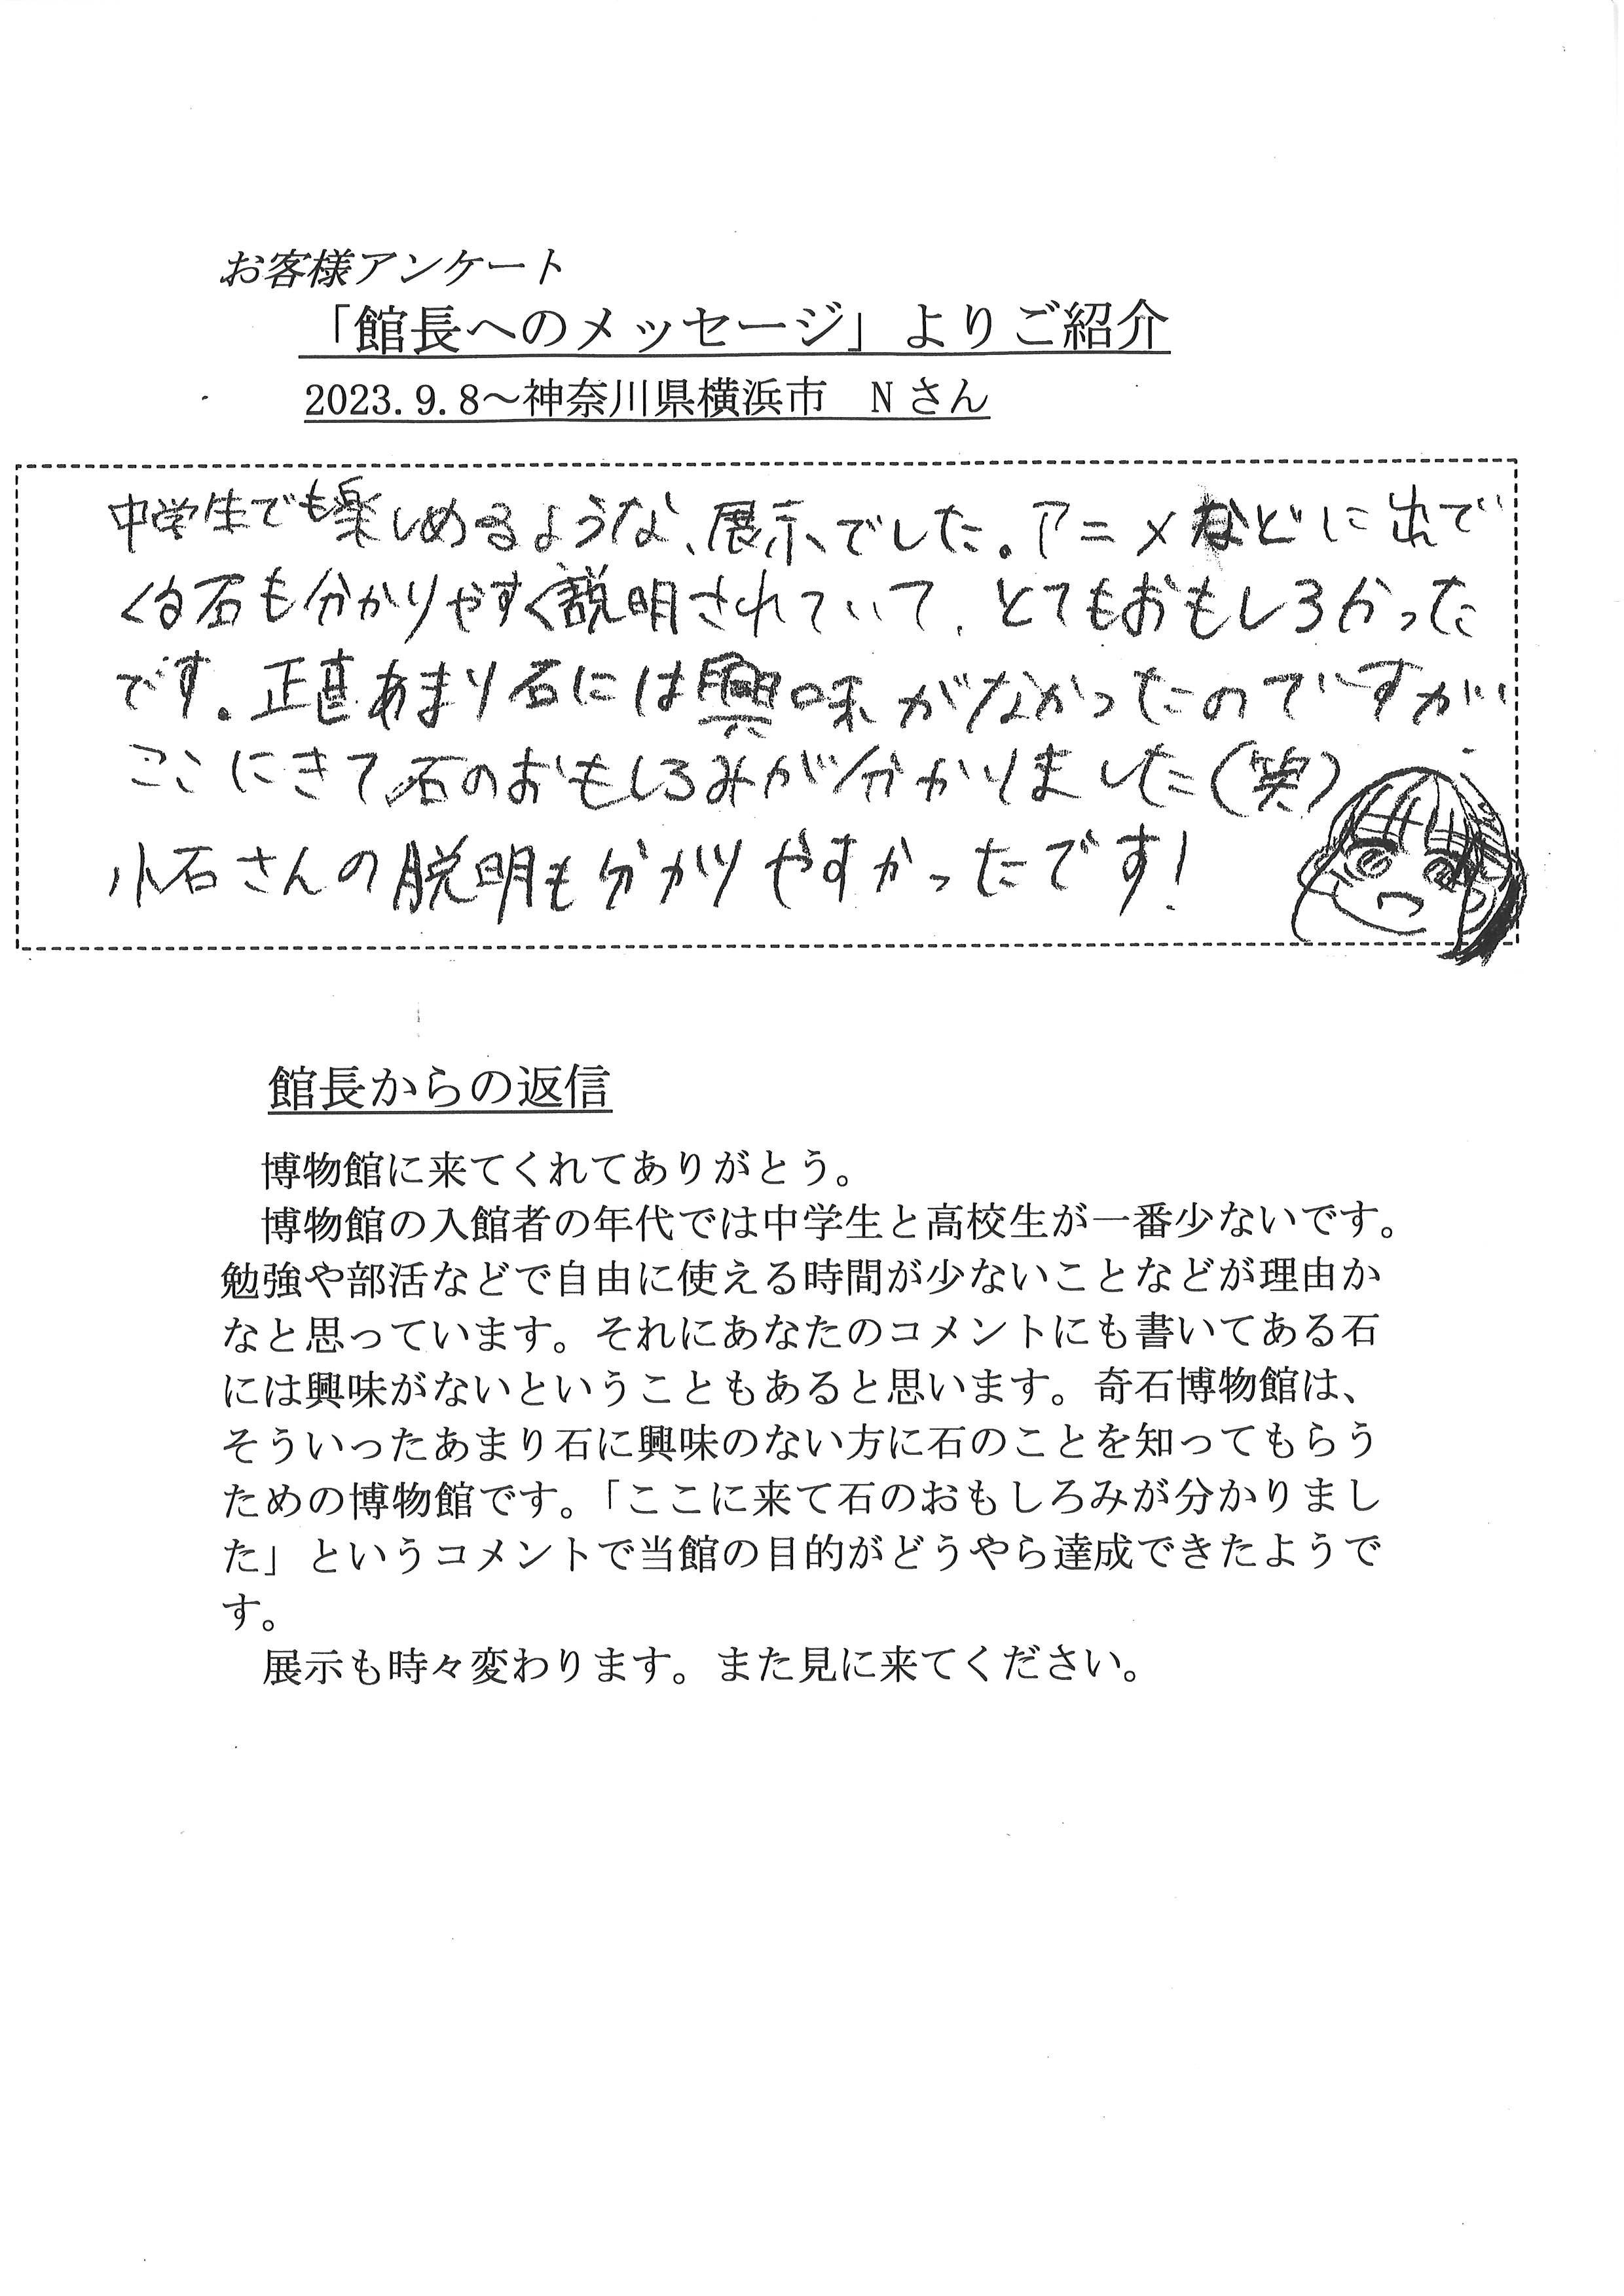 お客様アンケート
「館長へのメッセージ」よりご紹介
2023.9.8～神奈川県横浜市　Nさん
中学生でも楽しめるような、展示でした。アニメなどに出で
くる石も分かりやすく説明されていて、とてもおもしろかった
です。正直あまり石には興味がなかったのですが
ここにきて石のおもしろみが分かりました(笑)
小石さんの脱明も分かりやすかったです!
館長からの返信
博物館に来てくれてありがとう。
博物館の入館者の年代では中学生と高校生が一番少ないです。
勉強や部活などで自由に使える時間が少ないことなどが理由か
なと思っています。それにあなたのコメントにも書いてある石
には興味がないということもあると思います。奇石博物館は、
そういったあまり石に興味のない方に石のことを知ってもらう
ための博物館です。「ここに来て石のおもしろみが分かりまし
た」というコメントで当館の目的がどうやら達成できたようで
す。
展示も時々変わります。また見に来てください。